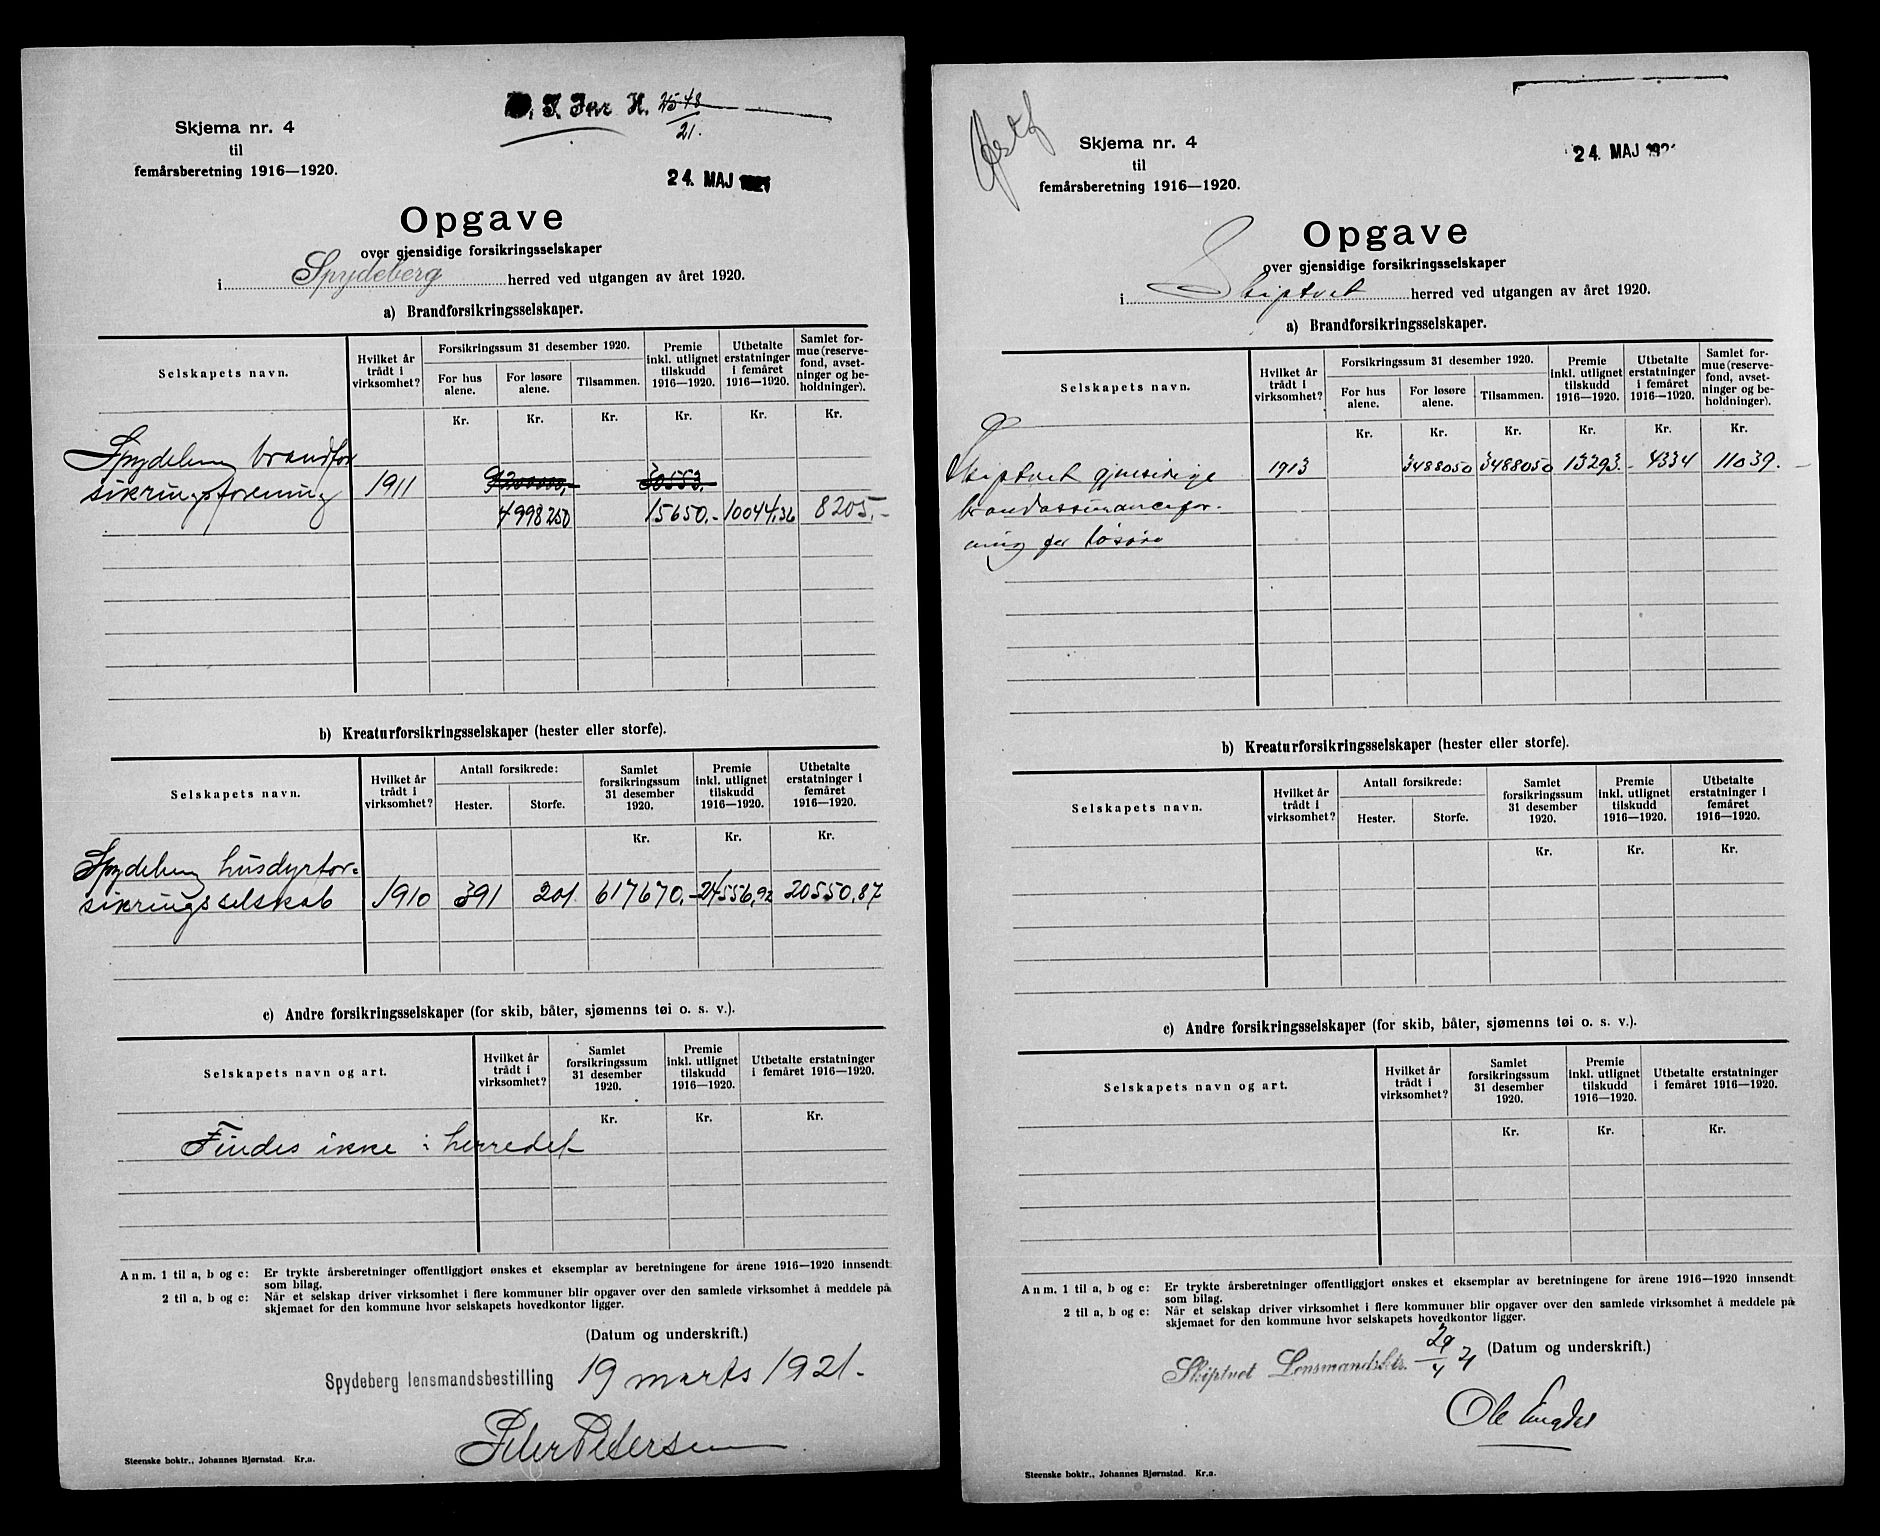 S. J. Jnr H. 2548/21.
Skjema nr. 4
til
femårsberetning 1916—1920.
24. MAJ 1921
Opgave
over gjensidige forsikringsselskaper
i Spydeberg herred ved utgangen av året 1920.
a) Brandforsikringsselskaper.
Selskapets navn.
Hvilket år trådt i virksomhet?
Forsikringssum 31 desember 1920.
For hus alene.
For løsøre alene.
Tilsammen.
Premie inkl. utlignet tilskudd 1916—1920.
Utbetalte erstatninger i femåret 1916—1920.
Samlet formue (reservefond, avsetninger og beholdninger).
Kr. Kr. Kr. Kr. Kr. Kr.
Spydeberg brandfor
sikringsforening 1911 9200000,- 30553.-
4998250 15650.- 10044,36 8205,-
b) Kreaturforsikringsselskaper (hester eller storfe).
Selskapets navn.
Hvilket år trådt i virksomhet?
Antall forsikrede:
Hester.
Storfe.
Samlet forsikringssum 31 desember 1920.
Premie inkl. utlignet tilskudd 1916—1920.
Utbetalte erstatninger i femåret 1916—1920.
Kr. Kr. Kr.
Spydeberg husdyrfor=
sikringsselskab 1910 391 201 617670,- 24556,92 20550,87
c) Andre forsikringsselskaper (for skib, båter, sjømenns tøi o. s. v.).
Selskapets navn og art.
Hvilket år trådt i virksomhet?
Samlet forsikringssum 31 desember 1920.
Premie inkl. utlignet tilskudd 1916—1920.
Utbetalte erstatninger i femåret 1916—1920.
Kr. Kr. Kr.
Findes ikke i herredet
Anm. 1 til a, b og c: Er trykte årsberetninger offentliggjort ønskes et eksemplar av beretningene for årene 1916—1920 innsendt
som bilag.
2 til a, b og c: Når et selskap driver virksomhet i flere kommuner blir opgaver over den samlede virksomhet å meddele på
skjemaet for den kommune hvor selskapets hovedkontor ligger.
(Datum og underskrift.)
Spydeberg lensmandsbestilling 19 marts 1921.
Peter Pedersen
Steenske boktr., Johannes Bjørnstad. Kr.a.
Østf
Skjema nr. 4
til
femårsberetning 1916—1920.
24. MAJ 1921
Opgave
over gjensidige forsikringsselskaper
i Skiptvet herred ved utgangen av året 1920.
a) Brandforsikringsselskaper.
Selskapets navn.
Hvilket år trådt i virksomhet?
Forsikringssum 31 desember 1920.
For hus alene.
For løsøre alene.
Tilsammen.
Premie inkl. utlignet tilskudd 1916—1920.
Utbetalte erstatninger i femåret 1916—1920.
Samlet formue (reservefond, avsetninger og beholdninger).
Kr. Kr. Kr. Kr. Kr. Kr.
Skiptvet gjensidige 1913 3488050 3488050 13293.- 4334 11039.-
brandassurancefor-
ning for løsøre
b) Kreaturforsikringsselskaper (hester eller storfe).
Selskapets navn.
Hvilket år trådt i virksomhet?
Antall forsikrede:
Hester.
Storfe.
Samlet forsikringssum 31 desember 1920.
Premie inkl. utlignet tilskudd 1916—1920.
Utbetalte erstatninger i femåret 1916—1920.
Kr. Kr. Kr.
c) Andre forsikringsselskaper (for skib, båter, sjømenns tøi o. s. v.).
Selskapets navn og art.
Hvilket år trådt i virksomhet?
Samlet forsikringssum 31 desember 1920.
Premie inkl. utlignet tilskudd 1916—1920.
Utbetalte erstatninger i femåret 1916—1920.
Kr. Kr. Kr.
Anm. 1 til a, b og c: Er trykte årsberetninger offentliggjort ønskes et eksemplar av beretningene for årene 1916—1920 innsendt
som bilag.
2 til a, b og c: Når et selskap driver virksomhet i flere kommuner blir opgaver over den samlede virksomhet å meddele på
skjemaet for den kommune hvor selskapets hovedkontor ligger.
(Datum og underskrift.)
Skiptvet Lensmandsktr. 29/4 21
Ole
Steenske boktr., Johannes Bjørnstad. Kr.a.